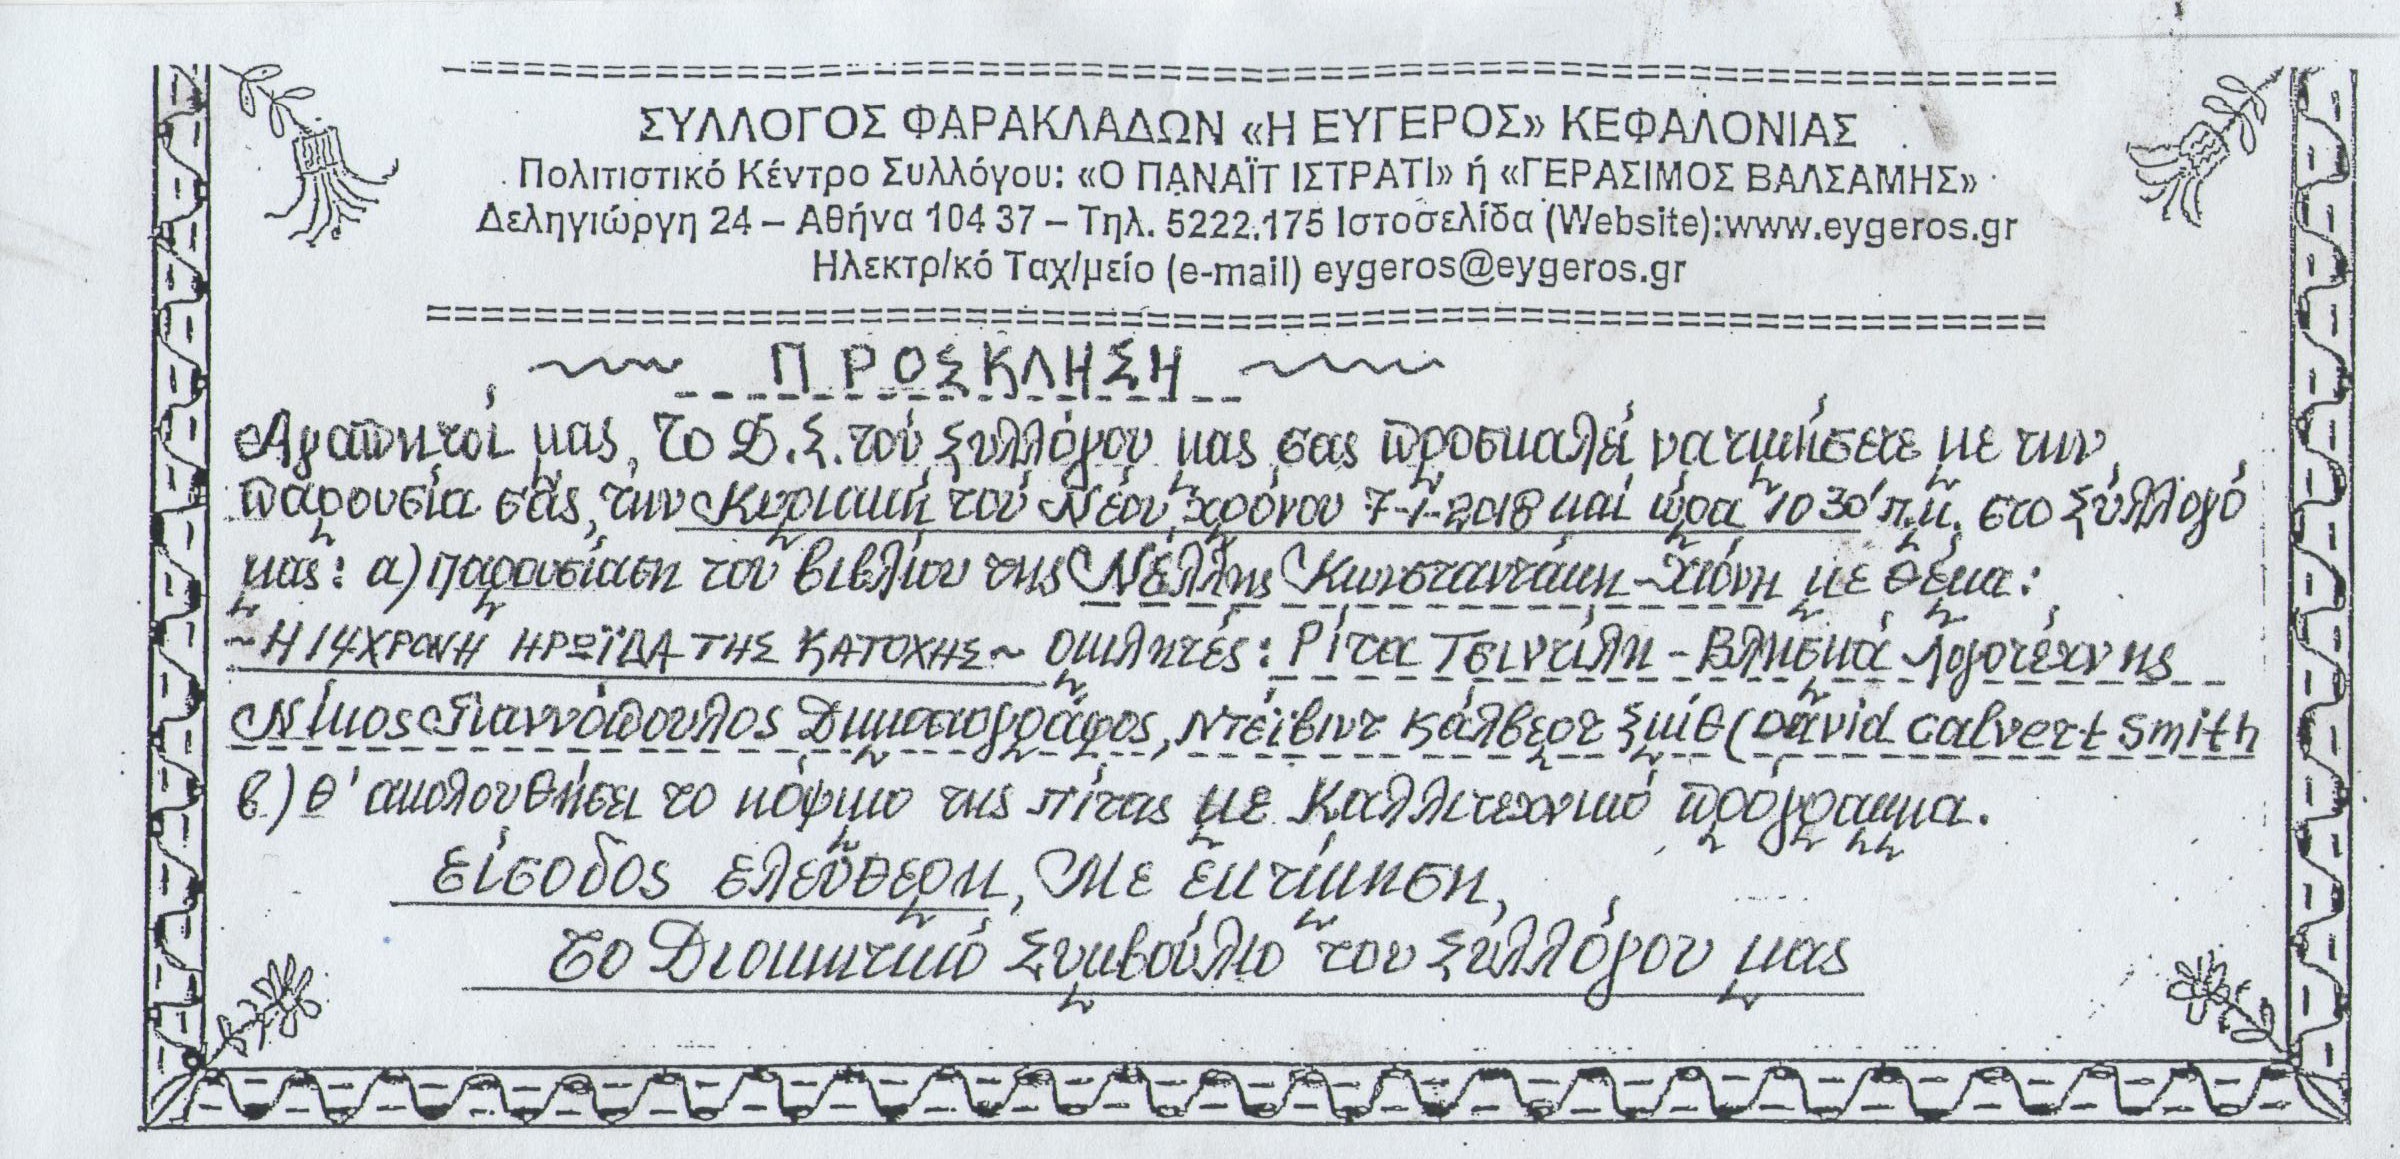 ΣΥΛΛΟΓΟΣ ΦΑΡΑΚΛΑΔΩΝ «Η ΕΥΓΕΡΟΣ» ΚΕΦΑΛΟΝΙΑΣ
Πολιτιστικό Κέντρο Συλλόγου: «Ο ΠΑΝΑΪΤ ΙΣΤΡΑΤΙ» ή «ΓΕΡΑΣΙΜΟΣ ΒΑΛΣΑΜΗΣ»
Δεληγιώργη 24 – Αθήνα 104 37 – Τηλ. 5222.175 Ιστοσελίδα (Website):www.eygeros.gr
Ηλεκτρ/κό Ταχ/μείο (e-mail) eygeros@eygeros.gr
ΠΡΟΣΚΛΗΣΗ
Αγαπητοί μας, το Δ.Σ. τού Συλλόγου μας σας προσκαλεί να τιμήσετε με την
παρουσία σάς, την Κυριακή τού Νέου χρόνου 7-1-2018 καί ώρα 10 30' π.μ. στο Σύλλογό
μας: α) Παρουσίαση του βιβλίου της Νέλλης Κωνσταντάκη-Χιόνη με θέμα:
~Η 14ΧΡΟΝΗ ΗΡΩΪΔΑ ΤΗΣ ΚΑΤΟΧΗΣ~ Ομιλητές: Ρίτα Τσιντίλη-Βλησμά Λογοτέχνης
Νίκος Γιαννόπουλος Δημοσιογράφος, Ντέϊβιντ Κάλβερτ Σμίθ (David Calvert Smith
β) Θ' ακολουθήσει το κόψιμο της πίτας με Καλλιτεχνικό πρόγραμμα.
Είσοδος ελεύθερη, Με εκτίμηση,
Το Διοικητικό Συμβούλιο του Συλλόγου μας